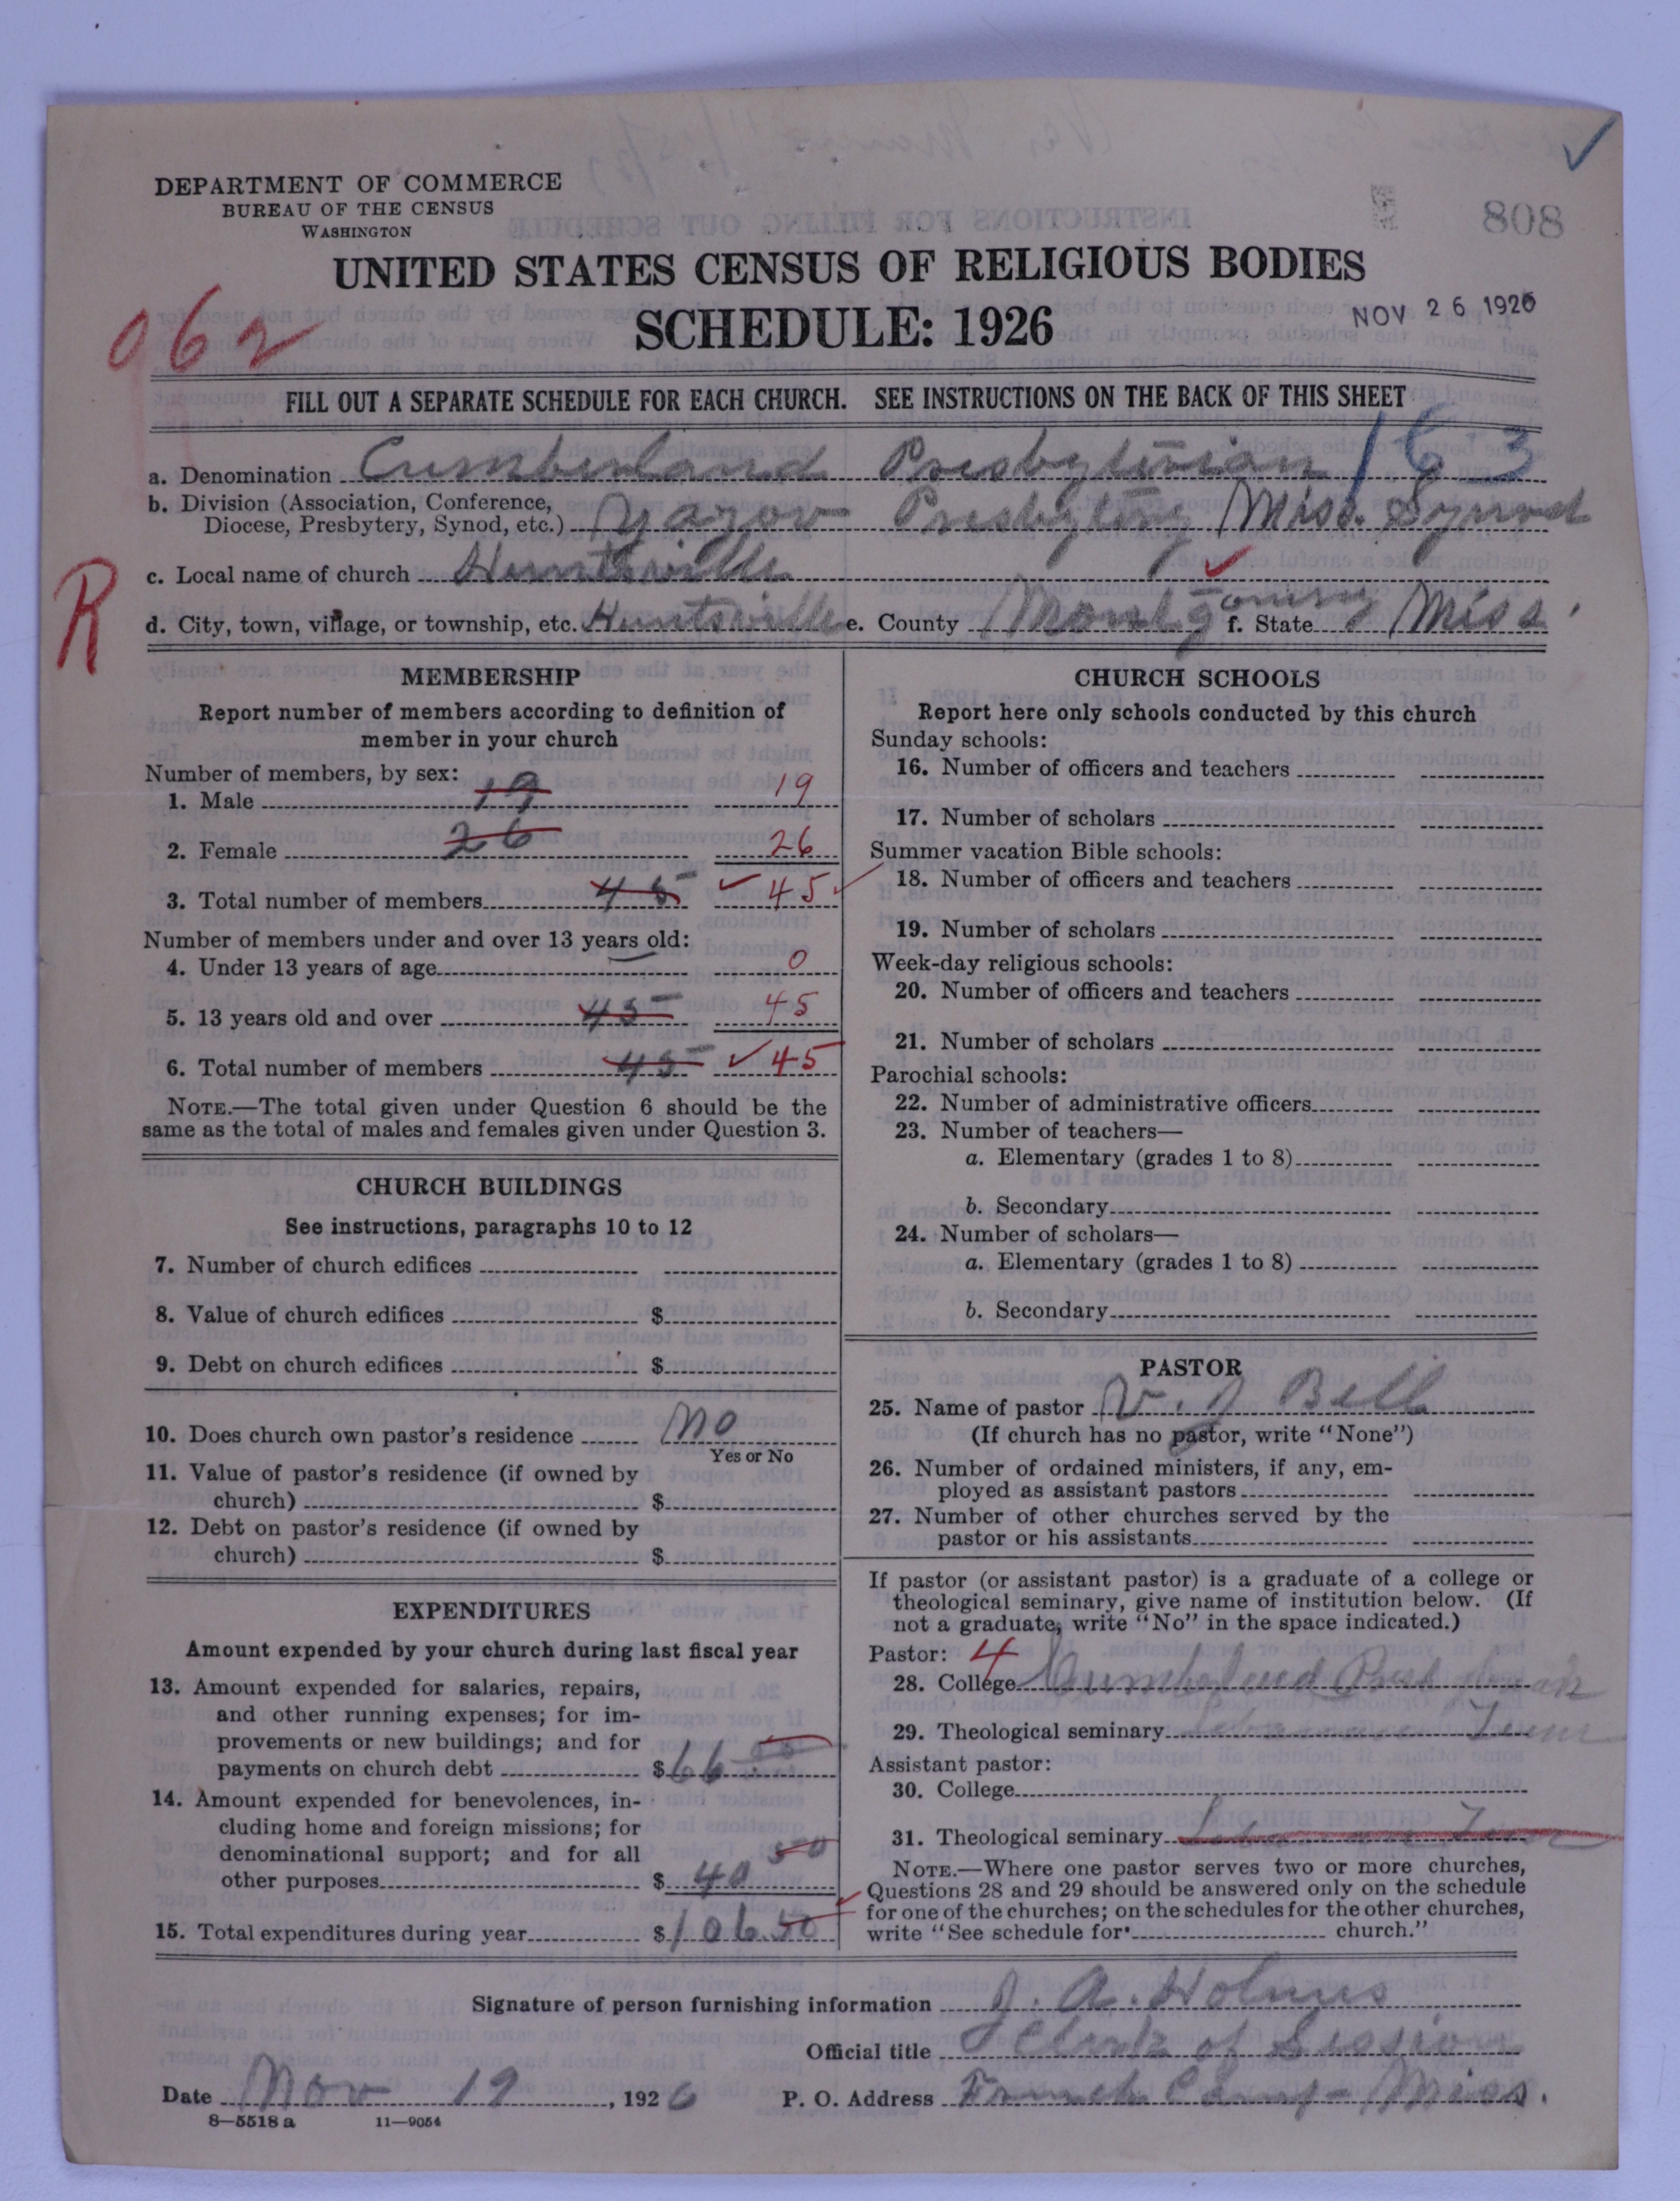 808
DEPARTMENT OF COMMERCE
BUREAU OF THE CENSUS
WASHINGTON
UNITED STATES CENSUS OF RELIGIOUS BODIES
SCHEDULE: 1926
NOV 26 1926
062
FILL OUT A SEPARATE SCHEDULE FOR EACH CHURCH. SEE INSTRUCTIONS ON THE BACK OF THIS SHEET
a. Denomination Cumberland Presbyterian 163
b. Division (Association, Conference,
Diocese, Presbytery, Synod, etc.) Yazoo Presbytery Miss. Synod
c. Local name of church Huntsville
R
d. City, town, village, or township, etc. Huntsville e. County Montgomery f. State Miss.
MEMBERSHIP
Report number of members according to definition of
member in your church
Number of members, by sex:
1. Male 19 19
2. Female 26 26
3. Total number of members 45 45
Number of members under and over 13 years old:
4. Under 13 years of age 0
5. 13 years old and over 45 45
6. Total number of members 45 45
NOTE.—The total given under Question 6 should be the
same as the total of males and females given under Question 3.
CHURCH BUILDINGS
See instructions, paragraphs 10 to 12
7. Number of church edifices
8. Value of church edifices $
9. Debt on church edifices $
10. Does church own pastor's residence No
Yes or No
11. Value of pastor's residence (if owned by
church) $
12. Debt on pastor's residence (if owned by
church) $
EXPENDITURES
Amount expended by your church during last fiscal year
13. Amount expended for salaries, repairs,
and other running expenses; for im-
provements or new buildings; and for
payments on church debt $66
14. Amount expended for benevolences, in-
cluding home and foreign missions; for
denominational support; and for all
other purposes $ 40 50
15. Total expenditures during year $106.50
CHURCH SCHOOLS
Report here only schools conducted by this church
Sunday schools:
16. Number of officers and teachers
17. Number of scholars
Summer vacation Bible schools:
18. Number of officers and teachers
19. Number of scholars
Week-day religious schools:
20. Number of officers and teachers
21. Number of scholars
Parochial schools:
22. Number of administrative officers
23. Number of teachers—
a. Elementary (grades 1 to 8)
b. Secondary
24. Number of scholars—
a. Elementary (grades 1 to 8)
b. Secondary
PASTOR
25. Name of pastor W. J Bell
(If church has no pastor, write "None")
26. Number of ordained ministers, if any, em-
ployed as assistant pastors
27. Number of other churches served by the
pastor or his assistants
If pastor (or assistant pastor) is a graduate of a college or
theological seminary, give name of institution below. (If
not a graduate, write "No" in the space indicated.)
Pastor: 4
28. College Cumberland
29. Theological seminary Lebanon Tenn
Assistant pastor:
30. College
31. Theological seminary Lebanon Tenn
NOTE.—Where one pastor serves two or more churches,
Questions 28 and 29 should be answered only on the schedule
for one of the churches; on the schedules for the other churches,
write "See schedule for church."
Signature of person furnishing information J. A. Holmes
Official title Clerk of Session
Date Nov 19, 1926 P. O. Address French Camp Miss.
8—5518 a 11—9054